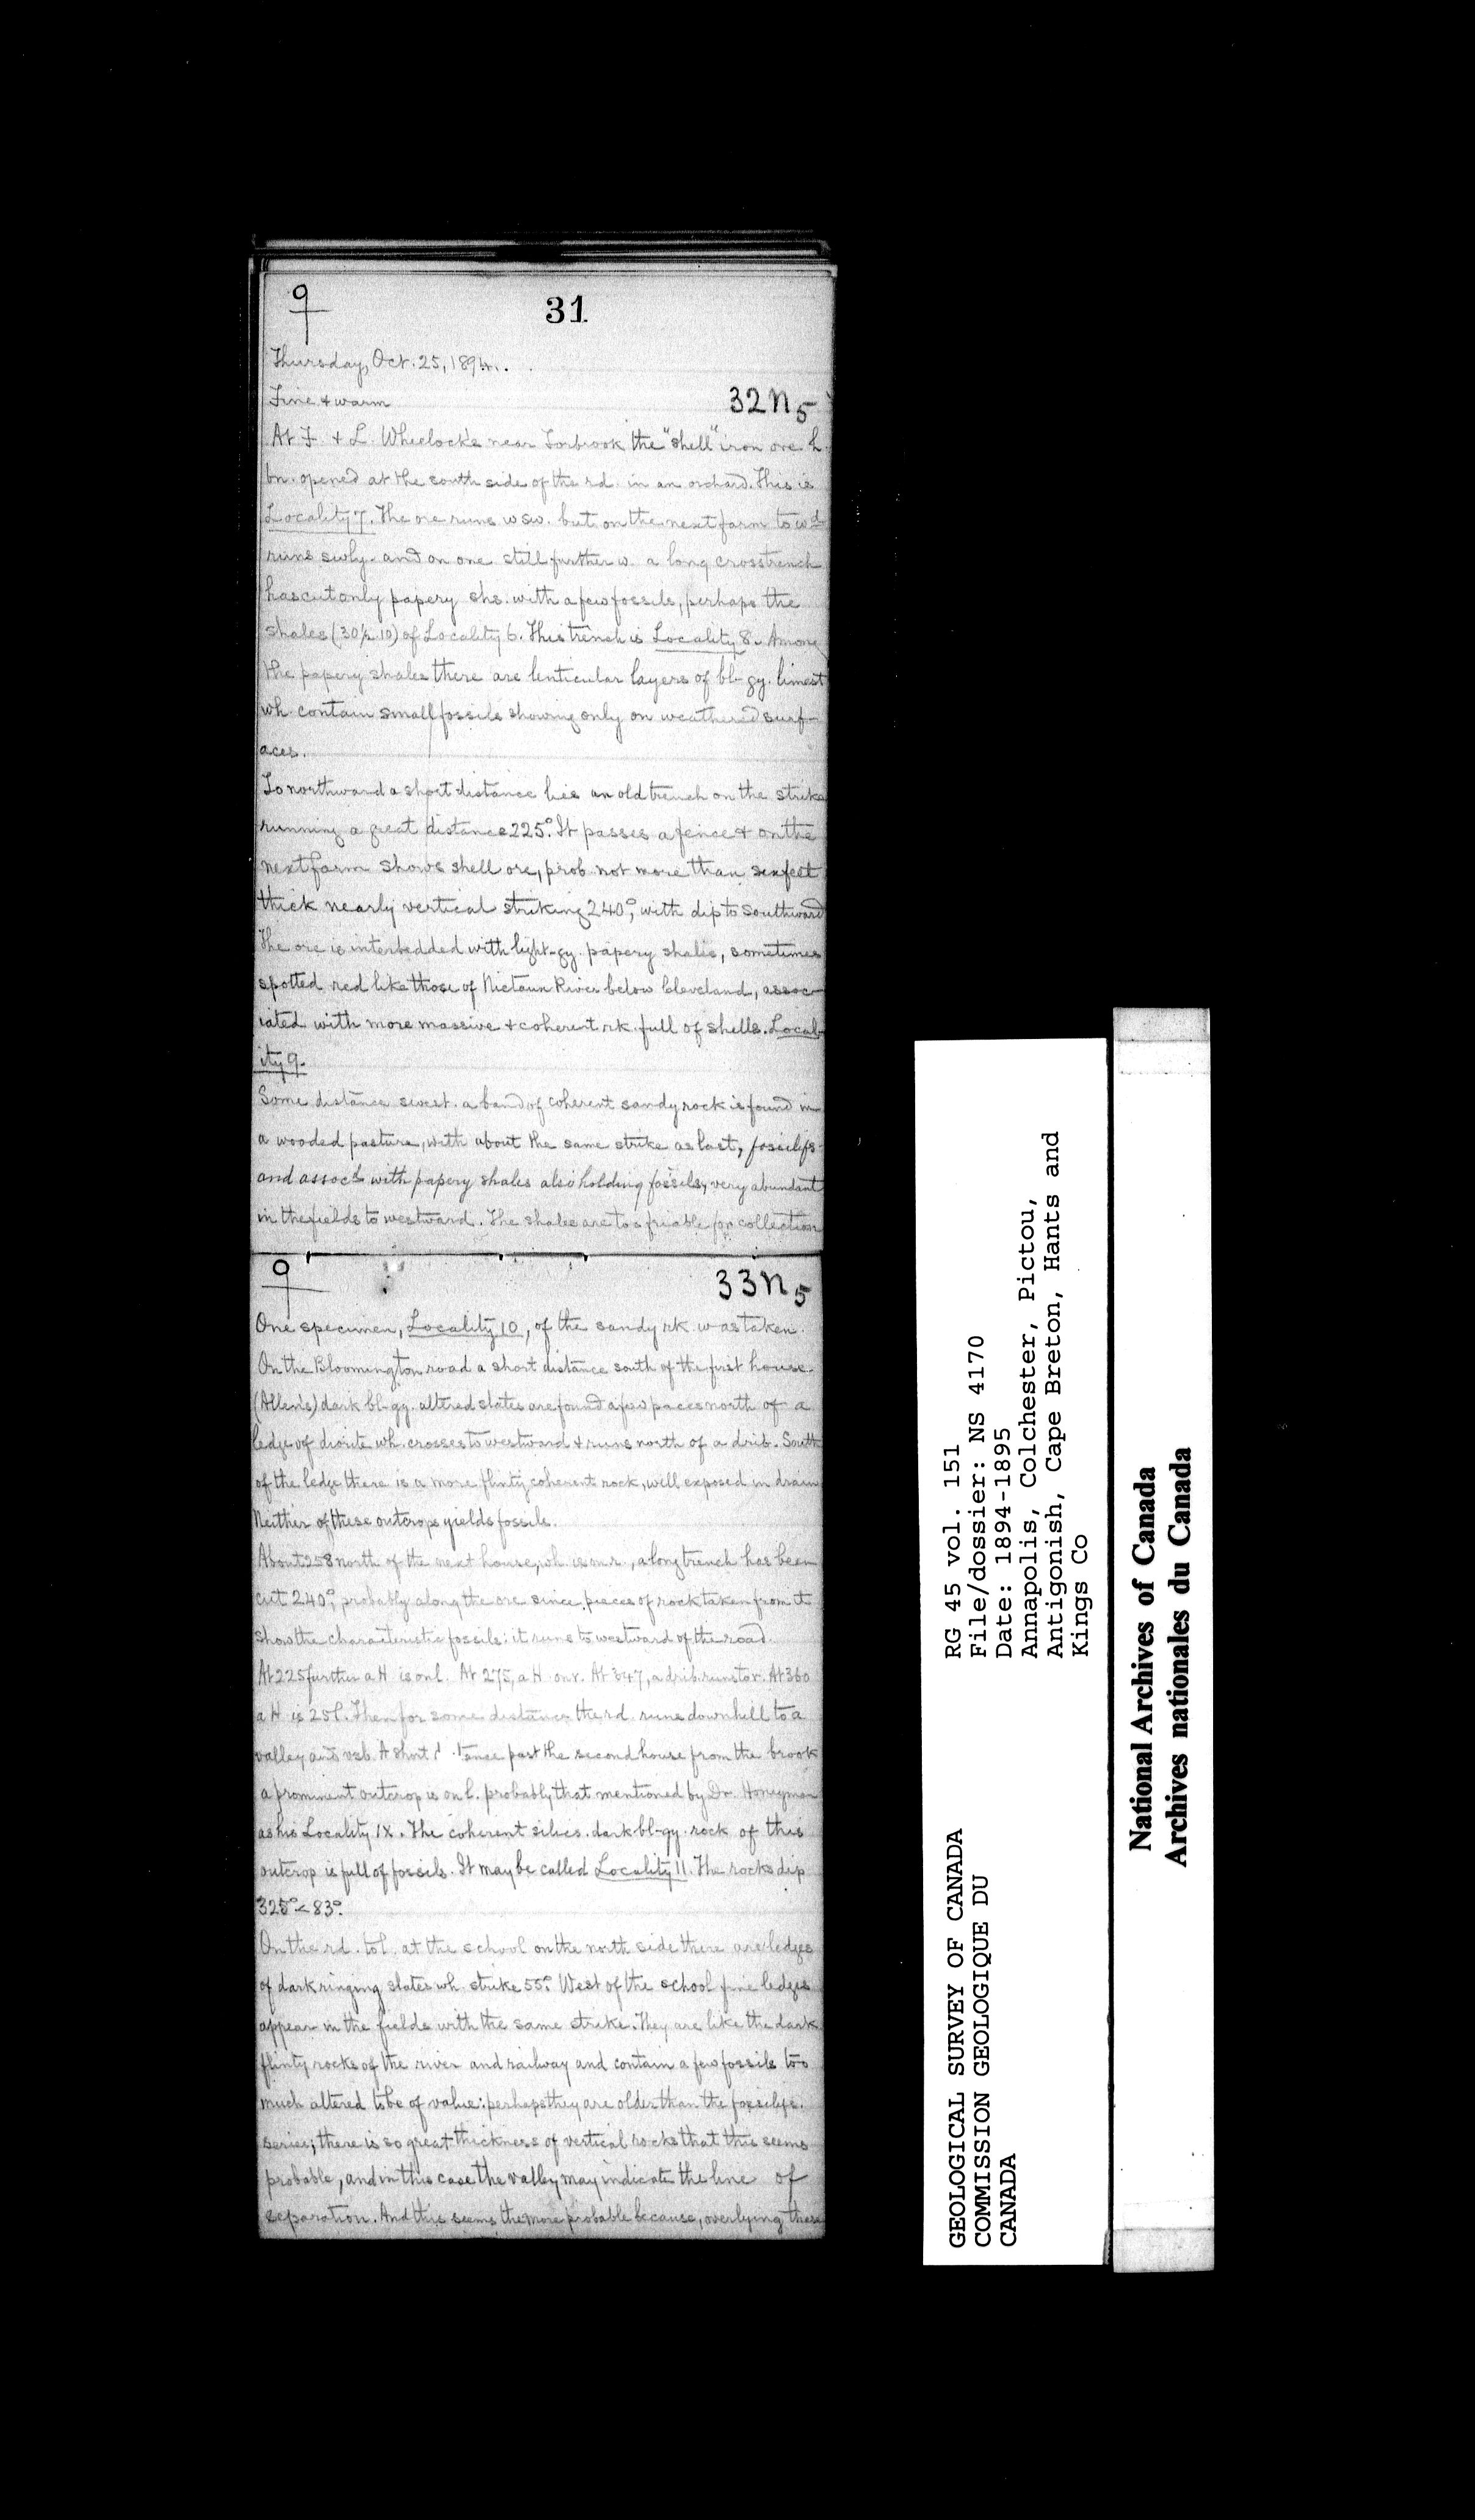 9
31
Thursday, Oct. 25, 1894.
Fine & warm
32 N 5
At F. & L. Wheelock's near Torbrook the "shell" iron ore h.
bn. opened at the south side of the rd. in an orchard. This is
Locality 7. The ore runs wsw. but on the next farm to wd
runs swly. and on one still further w. a long crosstrench
has cut only papery shs. with a few fossils, perhaps the
shales (30/2.10) of Locality 6. This trench is Locality 8. Among
the papery shales there are lenticular layers of bl-gy. limest
wh. contain small fossils showing only on weathered surf-
aces.
To northward a short distance lies an old trench on the strike
running a great distance 225°. It passes a fence & on the
next farm shows shell ore, prob. not more than six feet
thick nearly vertical striking 240°, with dip to southward
The ore is interbedded with light-gy. papery shales, sometimes
spotted red like those of Nictaun River below Cleveland, assoc-
iated with more massive & coherent rk. full of shells. Local-
ity 9.
Some distance swest. a band of coherent sandy rock is found in
a wooded pasture, with about the same strike as last, fossilifs.
and assocd with papery shales also holding fossils, very abundant
in the fields to westward. The shales are too friable for collection
9
33 N 5
One specimen, Locality 10, of the sandy rk. was taken.
On the Bloomington road a short distance south of the first house
(Allen's) dark bl-gy. altered slates are found a few paces north of a
ledge of diorite wh. crosses to westward & runs north of a drib. South
of the ledge there is a more flinty coherent rock, well exposed in drain
Neither of these outcrops yields fossils.
About 258 north of the next house, wh. is m.r., a long trench has been
cut 240°, probably along the ore since pieces of rock taken from it
show the characteristic fossils: it runs to westward of the road.
At 225 further a H is on l. At 275, a H on r. At 347, a drib. runs to r. At 360
a H is 25 l. Then for some distance the rd. runs downhill to a
valley and vsb. A short distance past the second house from the brook
a prominent outcrop is on l. probably that mentioned by Dr. Honeyman
as his Locality IX. The coherent silics. dark bl-gy. rock of this
outcrop is full of fossils. It may be called Locality 11. The rocks dip
325° < 83°.
On the rd. to l. at the school on the north side there are ledges
of dark ringing slates wh. strike 55°. West of the school fine ledges
appear in the fields with the same strike. They are like the dark
flinty rocks of the river and railway and contain a few fossils too
much altered to be of value: perhaps they are older than the fossilifs.
series; there is so great thickness of vertical rocks that this seems
probable, and in this case the valley may indicate the line of
separation. And this seems the more probable because, overlying these
RG 45 vol. 151
File/dossier: NS 4170
Date: 1894-1895
Annapolis, Colchester, Pictou,
Antigonish, Cape Breton, Hants and
Kings Co
GEOLOGICAL SURVEY OF CANADA
COMMISSION GEOLOGIQUE DU
CANADA
National Archives of Canada
Archives nationales du Canada